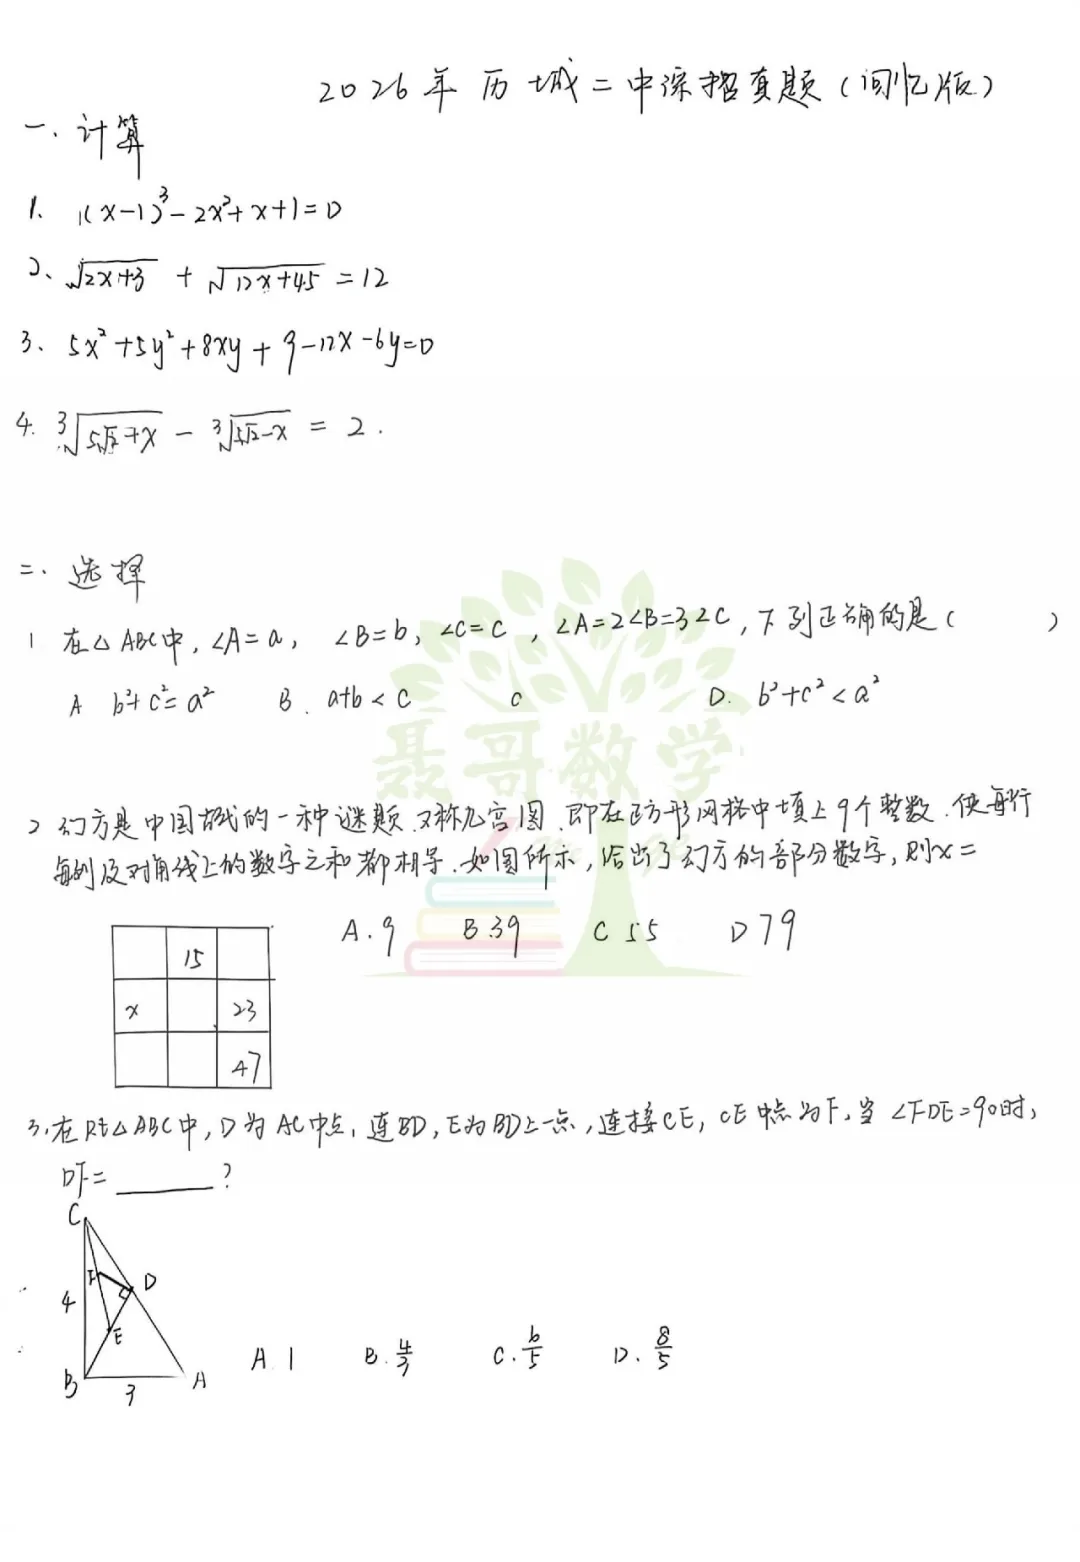 2026年历城二中综招真题(回忆版)
一、计算
1. (x-1)³-2x²+x+1=0
2、√2x+3 + √12x+45 = 12
3. 5x²+5y²+8xy+9-12x-6y=0
4. ³√5√2+x - ³√5√2-x = 2.
二.选择
1 在△ABC中,∠A=a, ∠B=b, ∠C=c ,∠A=2∠B=3∠C,下列正确的是( )
A b²+c²=a² B. a+b<c C D. b²+c²<a²
2 幻方是中国古代的一种谜题.又称九宫图.即在正方形网格中填上9个整数.使每行
每列及对角线上的数字之和都相等.如图所示,给出了幻方的部分数字,则x=
A.9 B.39 C 55 D 79
15
x 23
47
3,在Rt△ABC中,D为AC中点,连BD,E为BD上一点,连接CE,CE中点为F,当∠FDE=90时,
DF=______?
C
F D
4
E
B A
3
A.1 B.4/3 C.6/5 D.8/5
聂哥数学